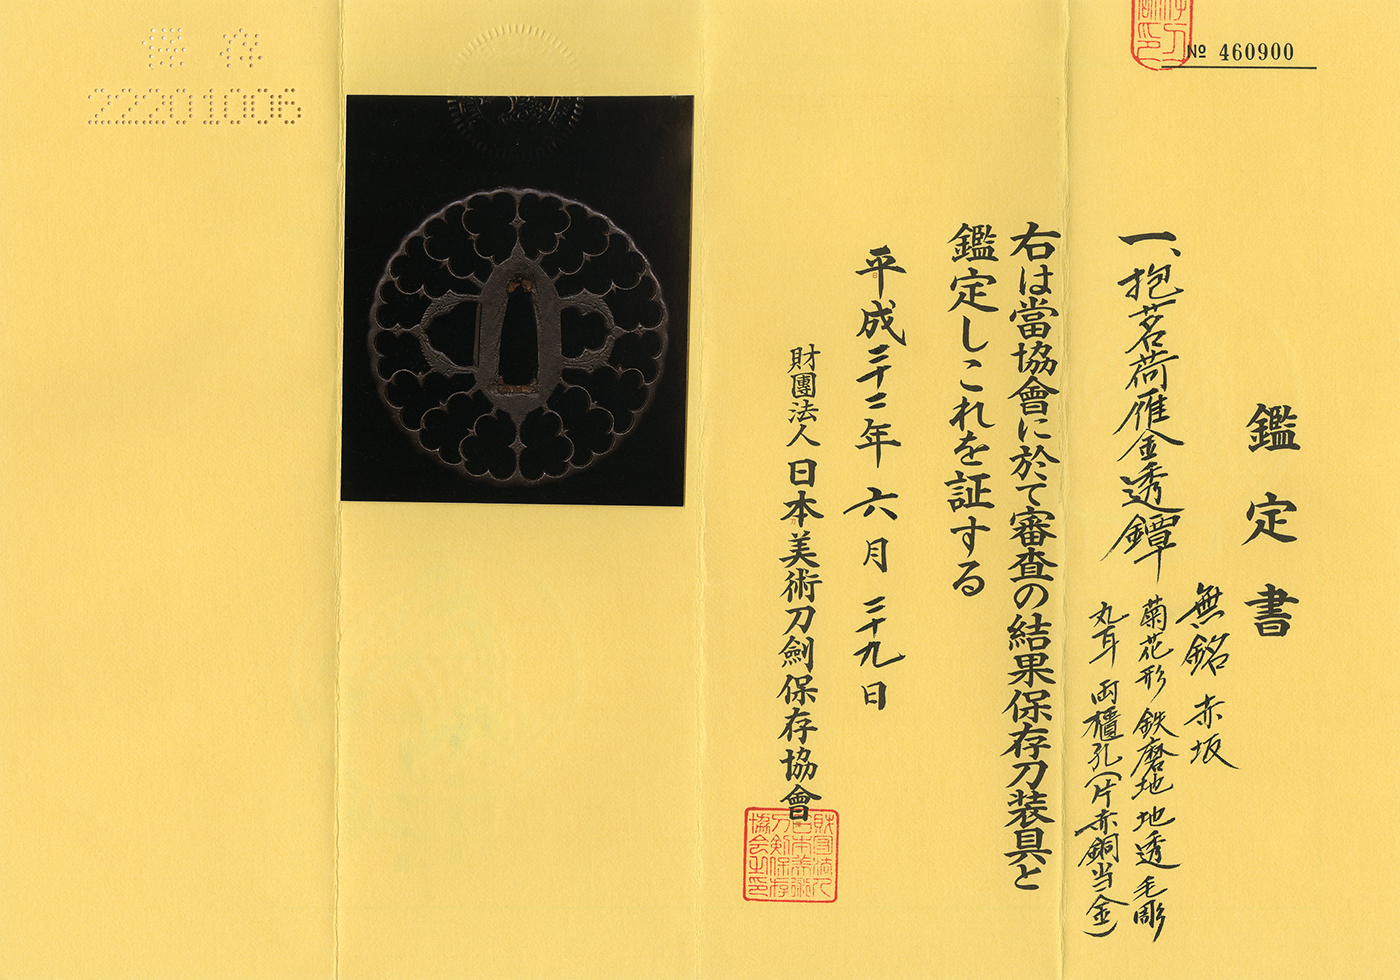 № 460900
鑑定書
一、抱茗荷雁金透鐔
無銘 赤坂
菊花形 鉄磨地 地透 毛彫
丸耳 両櫃孔(片赤銅当金)
右は當協會に於て審査の結果保存刀装具と
鑑定しこれを証する
平成二十二年 六月 二十九日
財團法人 日本美術刀劍保存協會
財団法人日本美術刀剣保存協会之印
保存
22201006